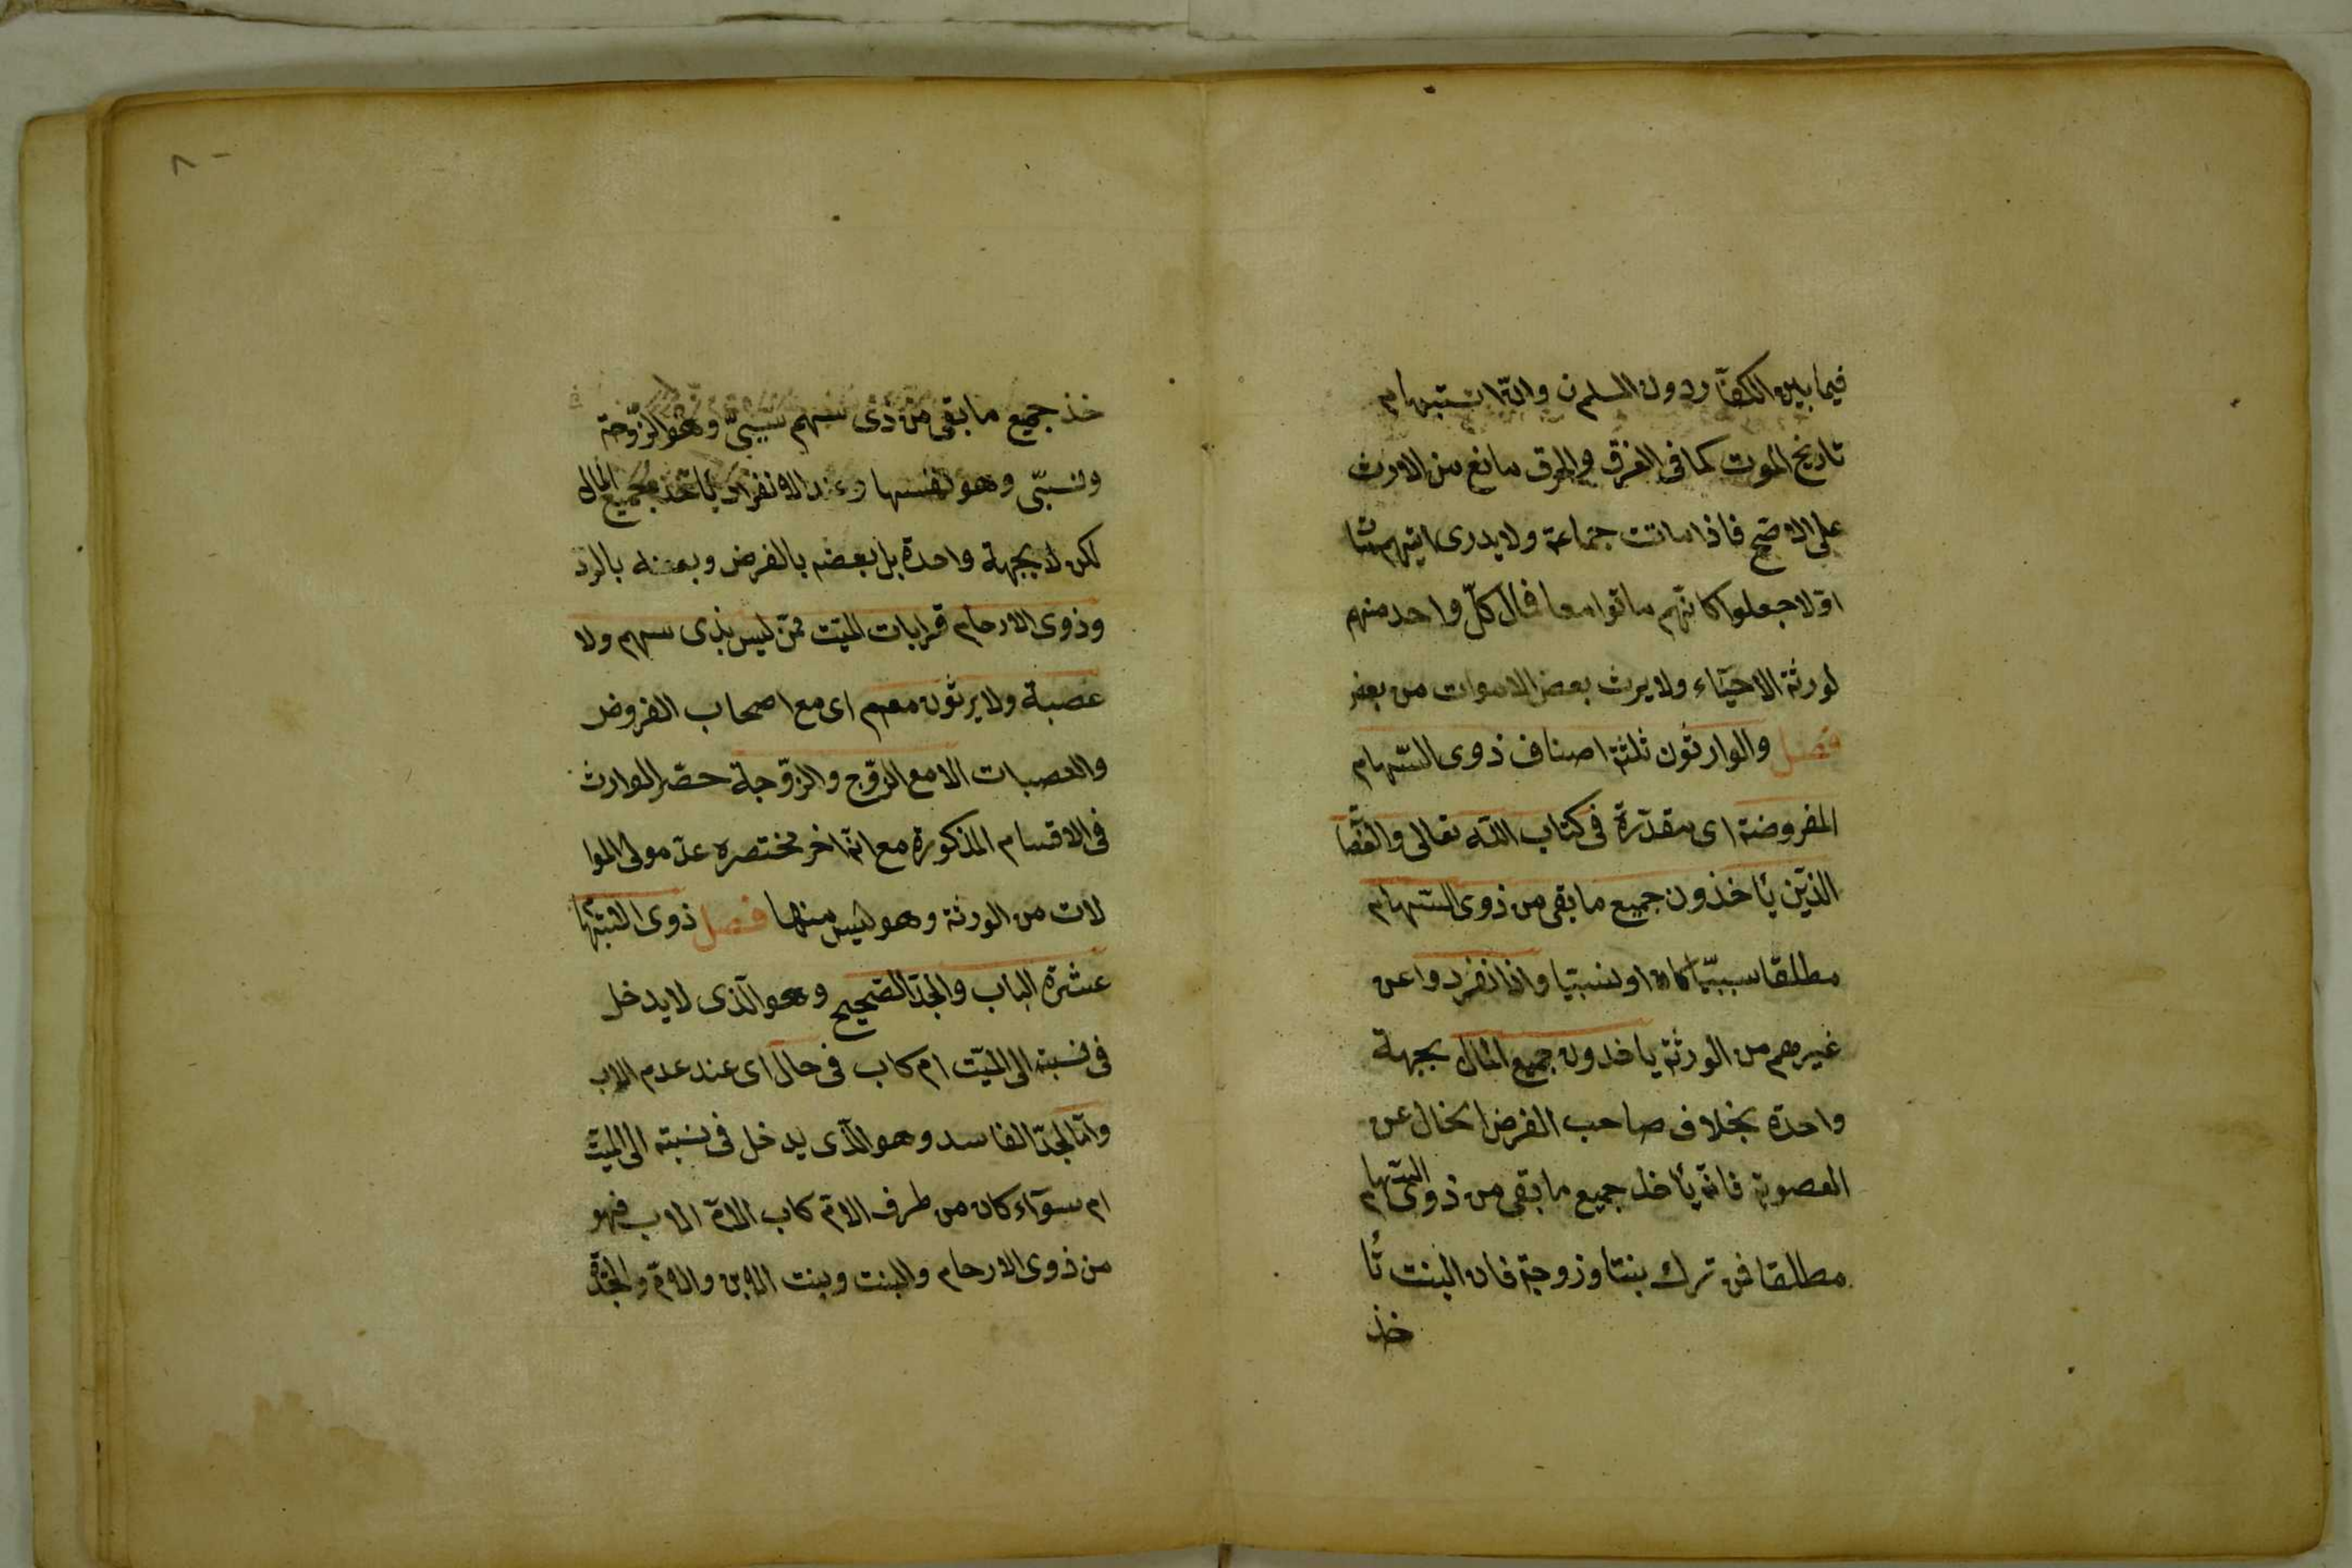 فيما بين الكفار دون المسلمن وانه اشتبهام
تاريخ الموت كما فى الغرق والحرق مانع من الارث
على الاصح فاذا ماتت جماعة ولا يدرى ايهم مثا
اولا جعلوا كانهم ماتوا معا فمال كل واحد منهم
لورثة الاحياء ولا يرث بعض الاموات من بعض
فصل والوارثون ثلثة اصناف ذوى السهام
المفروضة اى مقدرة فى كتاب الله تعالى والعصا
الذين يأخذون جميع ما بقى من ذوى السهام
مطلقا سببيا كان او نسبيا واذا انفردوا عن
غيرهم من الورثة ياخذون جميع المال بجهة
واحدة بخلاف صاحب الفرض الخال عن
العصوبة فانه يأخذ جميع ما بقى من ذوى السهام
مطلقا فمن ترك بنتا وزوجة فان البنت تأ
خذ
٨٠
خذ جميع ما بقى من ذى سهم سببى وهو الزوجة
ونسبى وهو نفسها وعند الانفراد يأخذ جميع المال
لكن لا بجهة واحدة بل بعضه بالفرض وبعضه بالرد
وذوى الارحام قرابات الميت ممن ليس بذى سهم ولا
عصبة ولا يرثون معهم اى مع اصحاب الفروض
والعصبات الا مع الزوج والزوجة حصر الوارث
فى الاقسام المذكورة مع انه اخر مختصره عد مولى الموا
لات من الورثة وهو ليس منها فصل ذوى السهام
عشرة الاب والجد الصحيح وهو الذى لا يدخل
فى نسبته الى الميت ام كاب فى حال اى عند عدم الاب
واما الجد الفاسد وهو الذى يدخل فى نسبته الى الميت
ام سوآء كان من طرف الام كاب الام الاب فهو
من ذوى الارحام والبنت وبنت الابن والام والجدة